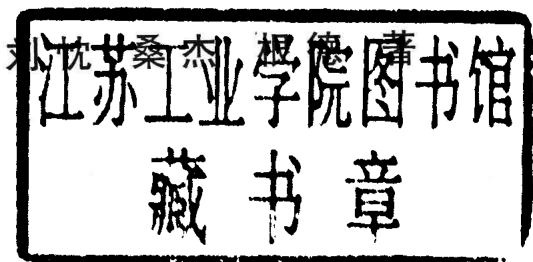 刘忱 桑杰 根德 著
江苏工业学院图书馆
藏书章